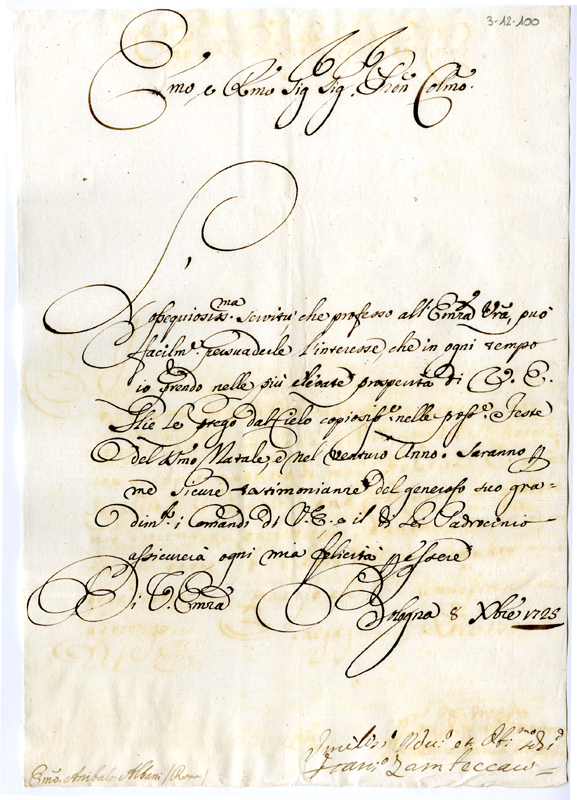 3-12-100
Emo e Rmo Sig Sig. Pron Colmo.
L'ossequiosiss.ma servitù che professo all'Emza Vra, può
facilm.e persuaderle l'interesse che in ogni tempo
io prendo nelle più elevate prosperità di V. E.
Glie le prego dal Cielo copiosiss.e nelle pross.e Feste
del Smo Natale, e nel venturo Anno. Saranno p
me sicure testimonianze del generoso suo gra=
dim.to i Comandi di V. E. e il di Lei Padrocinio
assicurerà ogni mia felicità p essere
Di V. Emza
Bologna 8 Xbre 1723
Zambeccari
Emo. Anibale Albani (Roma)